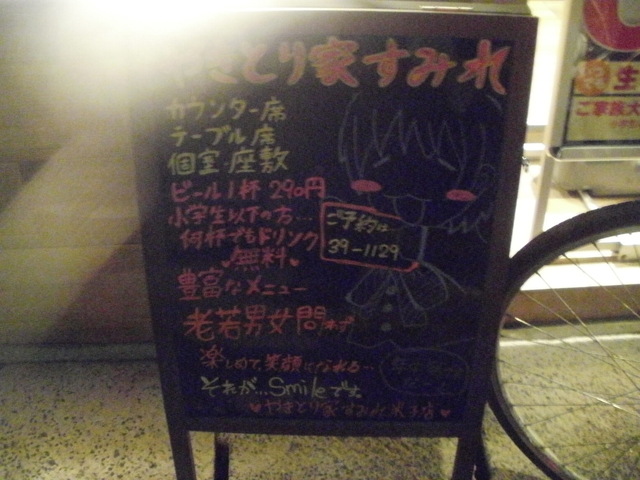 やきとり家すみれ
カウンター席
テーブル席
個室・座敷
ビール1杯 290円
小学生以下の方…
何杯でもドリンク
♥無料♥
ご予約は
39-1129
豊富なメニュー
老若男女問わず
楽しめて、笑顔になれる…
それが…Smileです
♥やきとり家すみれ米子店♥
生
ご家族